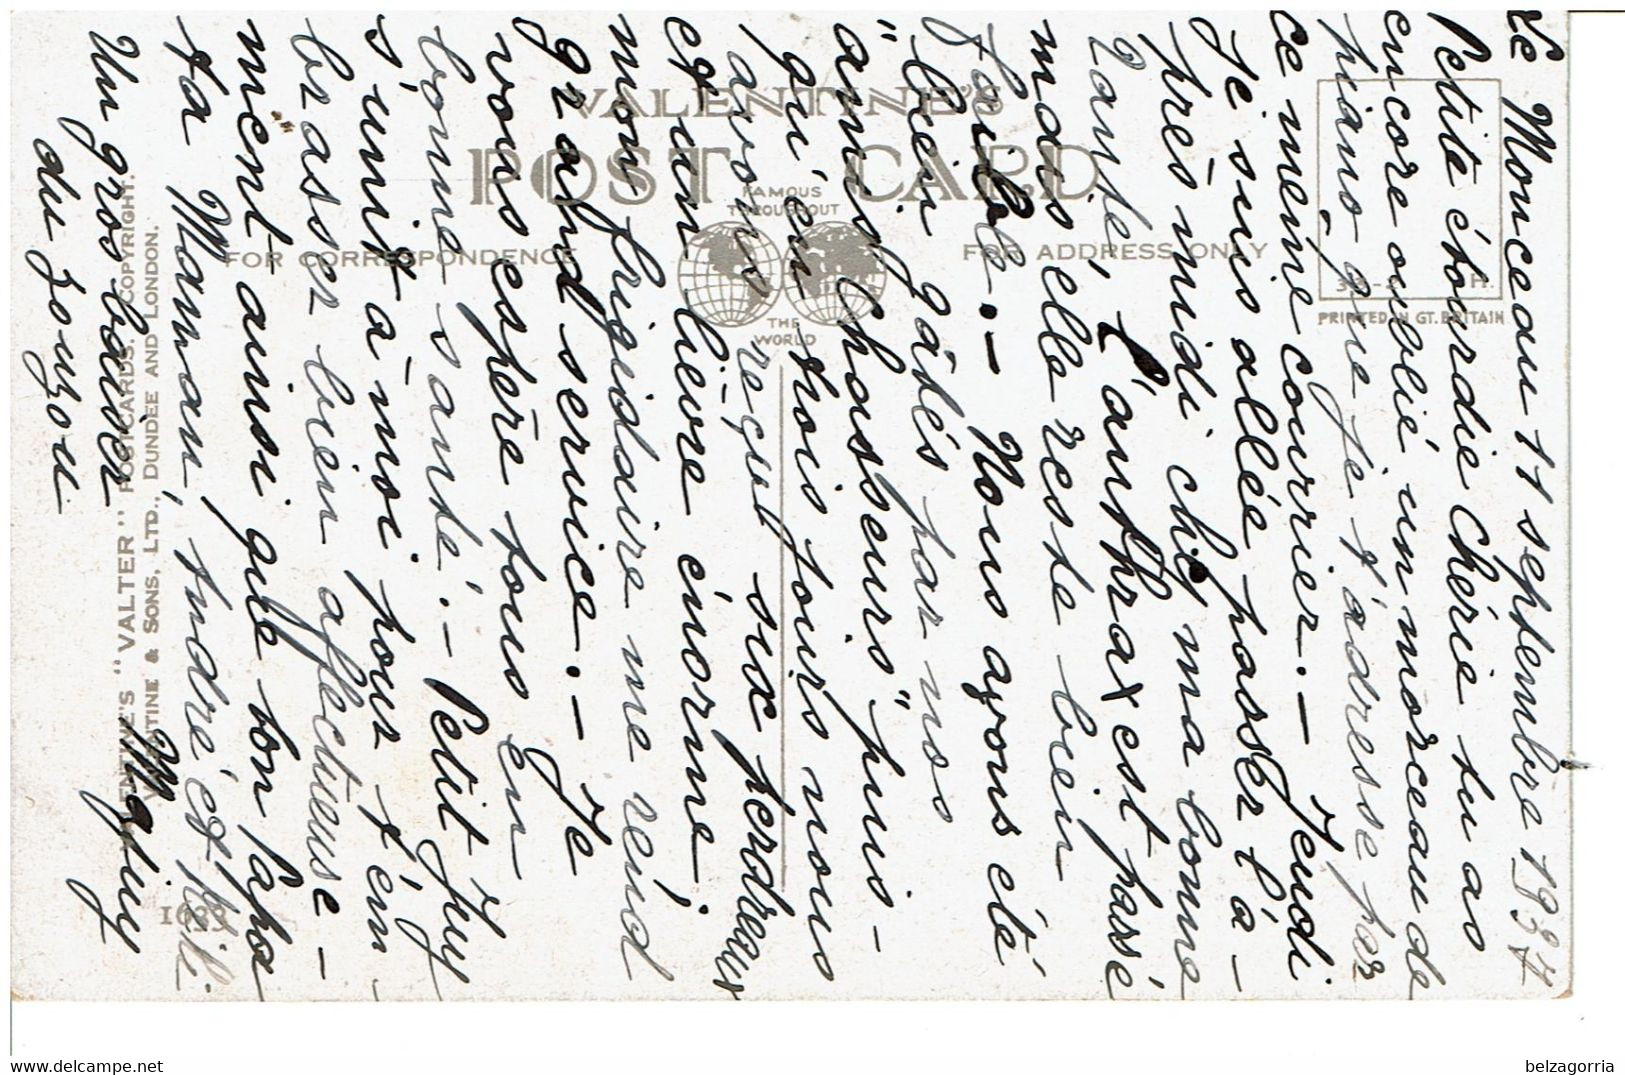 Le Monceau 11 septembre 1937
Petite étourdie Chérie tu as
encore oublié un morceau de
piano que je t'adresse par
ce même courrier. – Jeudi
je suis allée passer l'a-
près midi chez ma bonne
l'anthrax est passé
mais elle reste bien
faible. – Nous avons été
bien gâtés par nos
"amis Chasseurs" puis-
qu'en trois jours nous
avons reçu six perdreaux
et un lièvre énorme,
mon frigidaire me rend
grand service. – Je
vous espère tous en
bonne santé. – Petit Juy
s'unit à moi pour t'em-
brasser bien affectueuse-
ment ainsi que ton Papa
ta Maman, André et
Un gros baiser
du zouzou
VALENTINE'S
POST CARD
FAMOUS
THROUGHOUT
THE
WORLD
FOR CORRESPONDENCE
FOR ADDRESS ONLY
PRINTED IN GT. BRITAIN
VALENTINE'S "VALTER" POSTCARDS. COPYRIGHT.
VALENTINE & SONS, LTD., DUNDEE AND LONDON.
1033
belzagorria